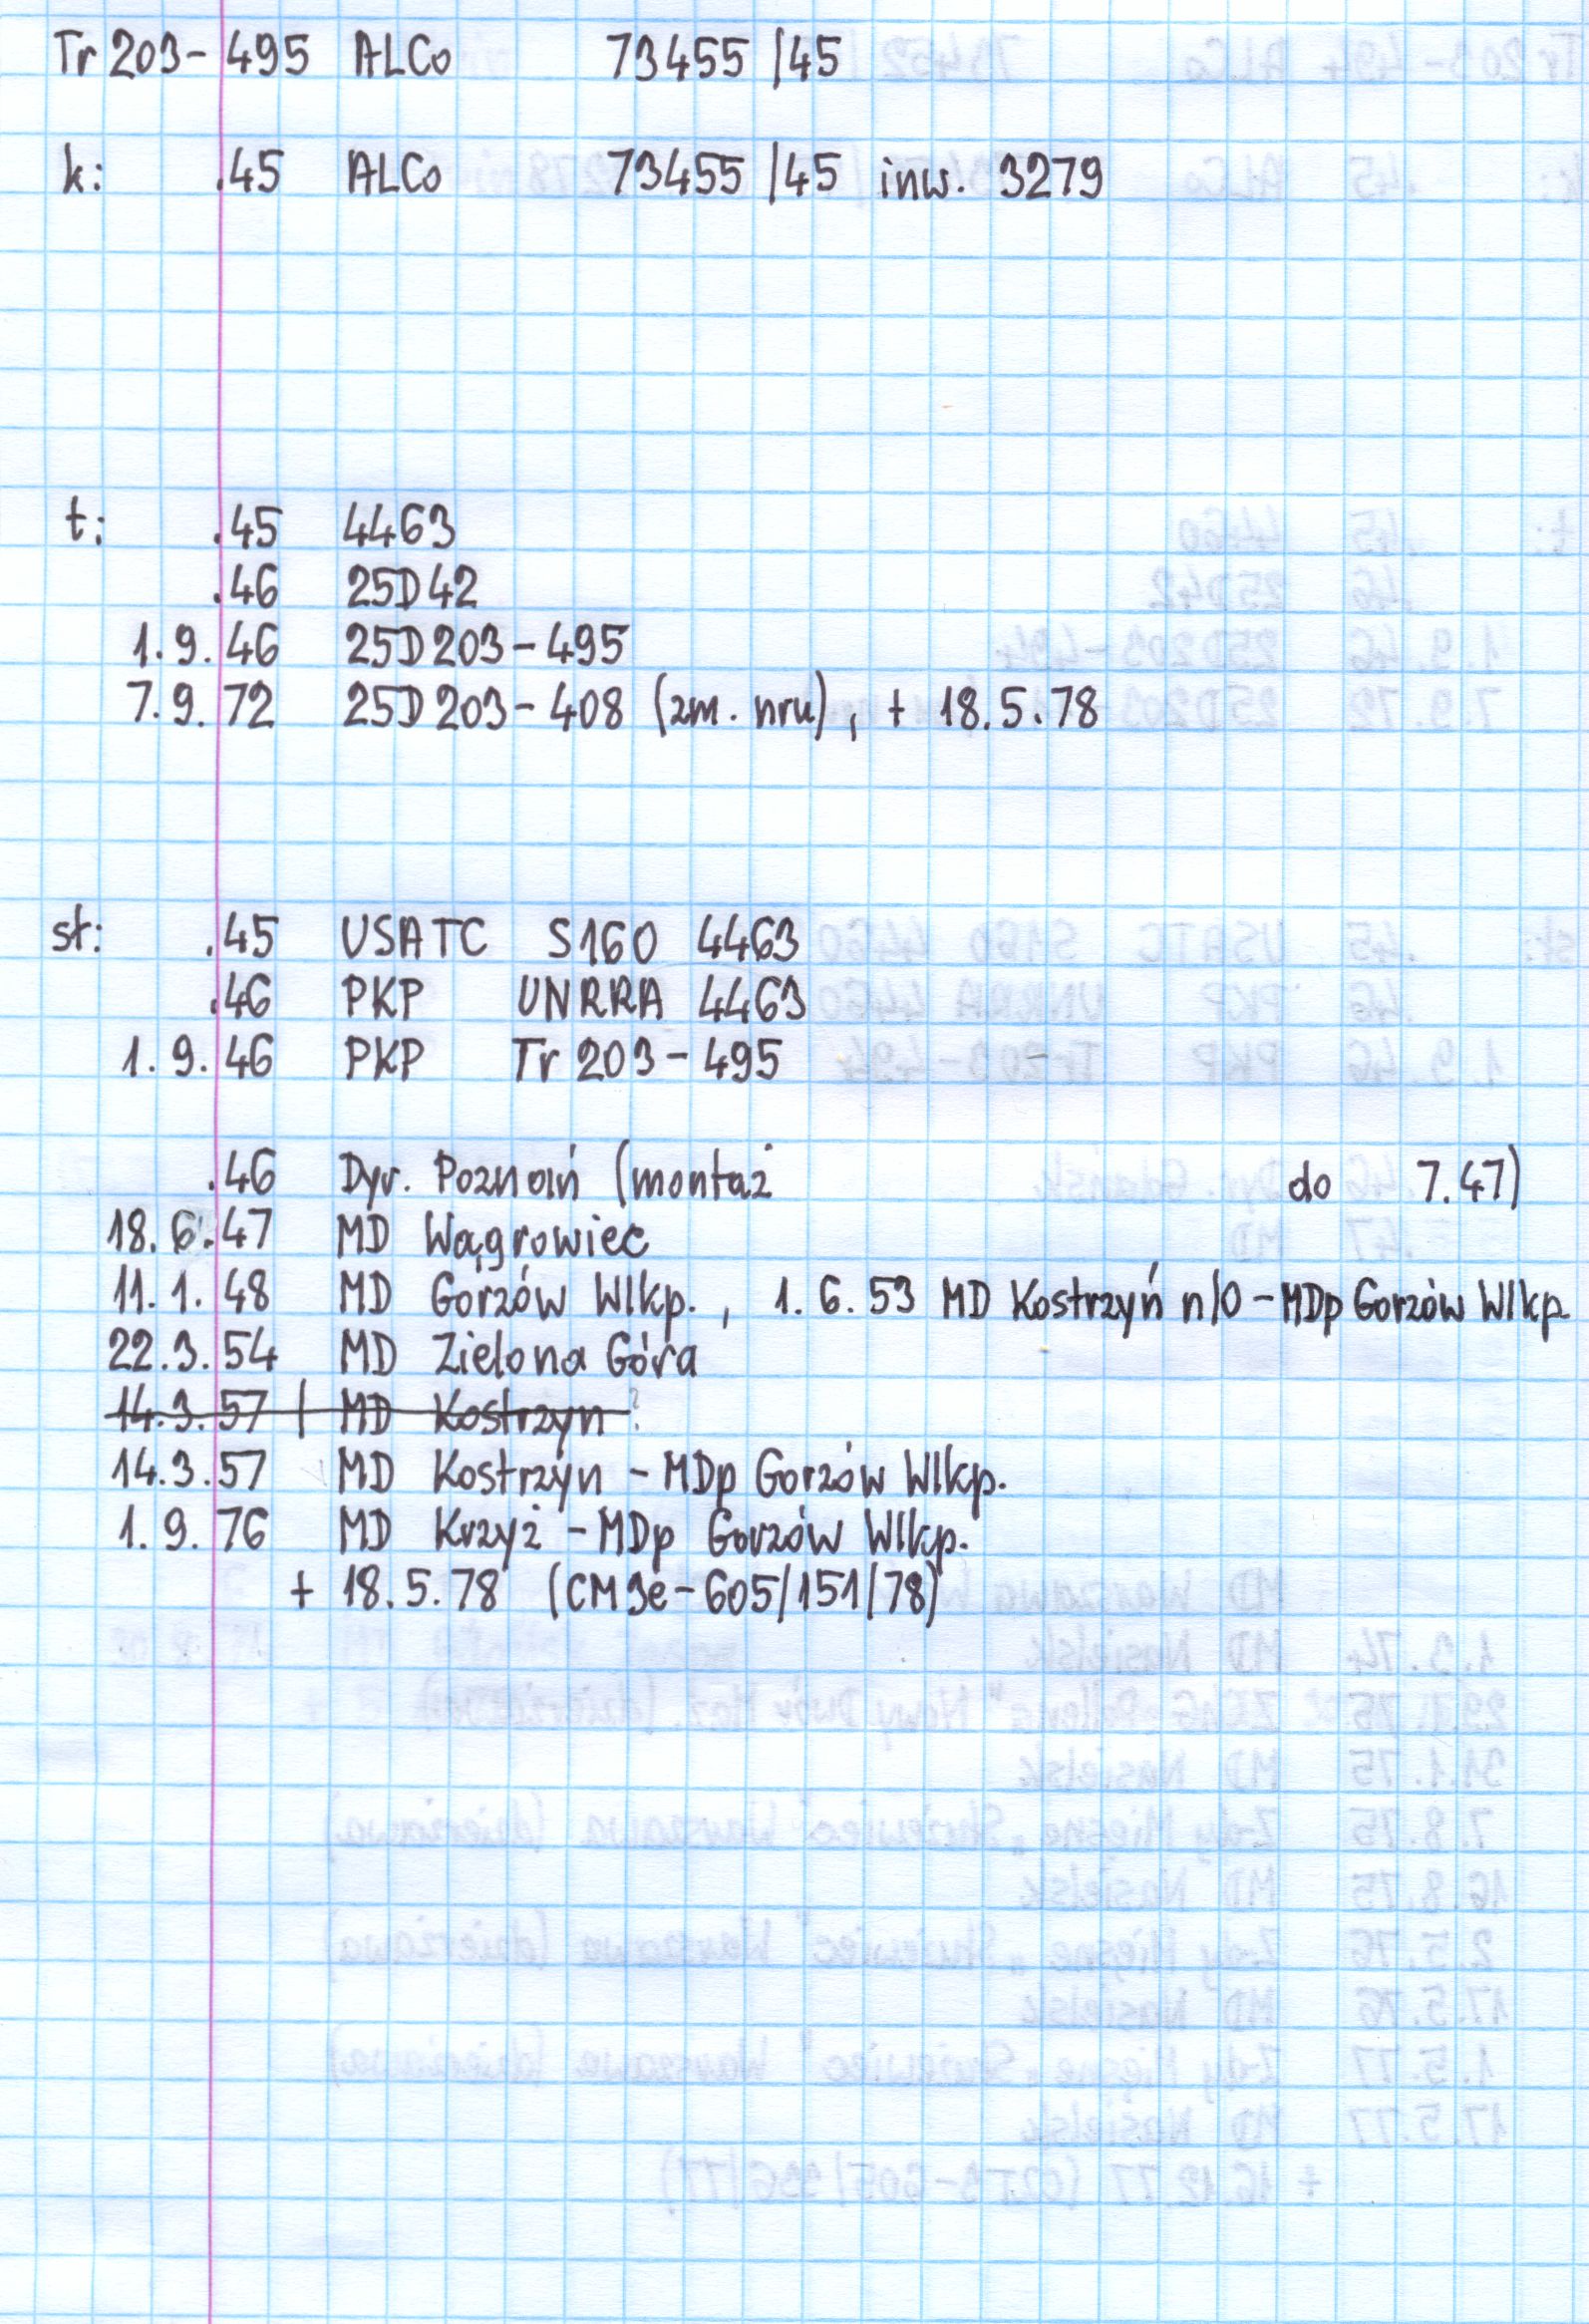 Tr 203-495 ALCo 73455/45
k: .45 ALCo 73455/45 inw. 3279
t: .45 4463
.46 25D42
1.9.46 25D203-495
7.9.72 25D203-408 (zm. nru), + 18.5.78
st: .45 USATC S160 4463
.46 PKP UNRRA 4463
1.9.46 PKP Tr 203-495
.46 Dyr. Poznań (montaż do 7.47)
18.6.47 MD Wągrowiec
11.1.48 MD Gorzów Wlkp., 1.6.53 MD Kostrzyń n/O - MDp Gorzów Wlkp.
22.3.54 MD Zielona Góra
14.3.57 | MD Kostrzyn ?
14.3.57 MD Kostrzyn - MDp Gorzów Wlkp.
1.9.76 MD Krzyż - MDp Gorzów Wlkp.
+ 18.5.78 (CM3e-605/151/78)